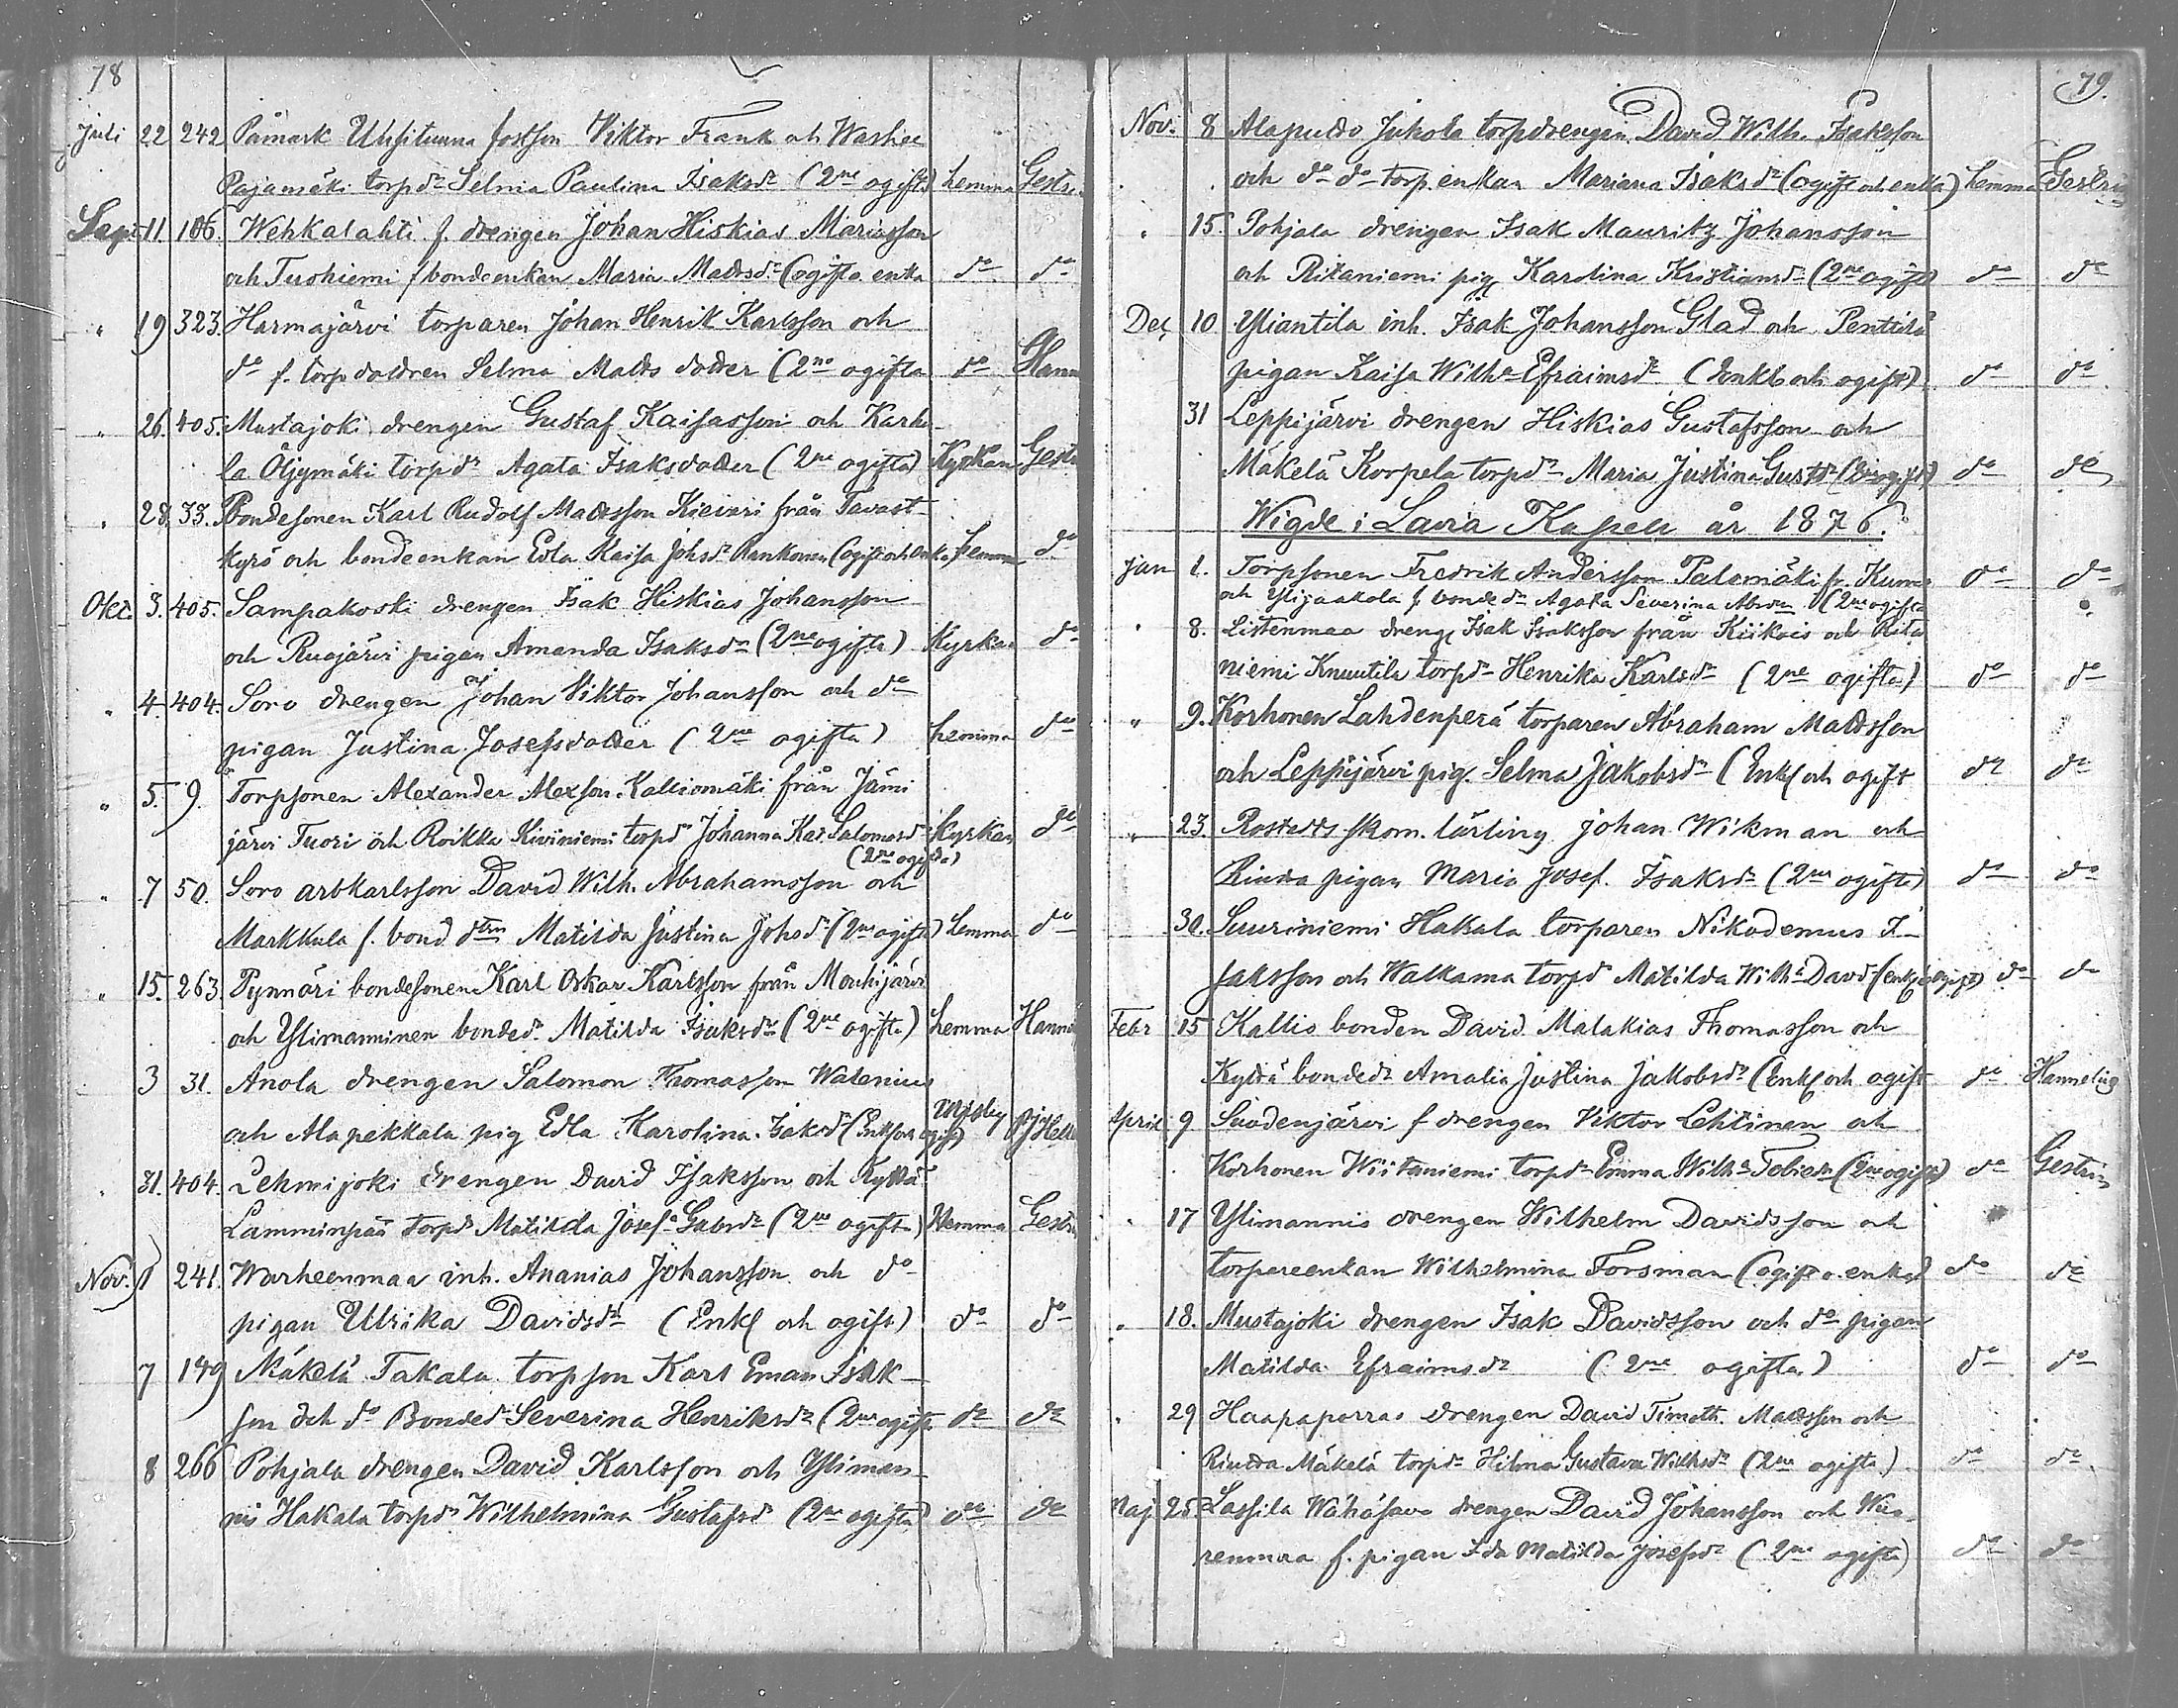 78
Juli 22 242 Påmark Uusitunna fostson Viktor Frank och
Pajamäki torpdr Selma Paulina Isaksdr (2ne ogifta) hemma Gestr.
Sept 11. 186. Wehkalahti f. drengen Johan Hiskias Mariasson
och f bondeenkan Maria Mattsdr (ogift o. enka do do
" 19 323. Harmajärvi torparen Johan Henrik Karlsson och
do f. torp dottren Selma Matts dotter (2ne ogifta do Hann
" 26. 405. Mustajoki drengen Gustaf Kaisasson och Karhu-
la Öljymäki torpdr Agata Isaksdotter (2ne ogifta) Kyrkan Gestr
" 28. 33. Bondesonen Karl Rudolf Mattsson från Tavast-
kyrö och bondeenkan Edla Kaisa Johsdr Rankonen (ogift och enka hemma do
Okt. 3. 405. Sampakoski drengen Isak Hiskias Johansson
och Ruojärvi pigan Amanda Isaksdr (2ne ogifta) Kyrkan do
" 4. 404. Soro drengen Johan Viktor Johansson och do
pigan Justina Josefsdotter (2ne ogifta) hemma do
" 5. 9. Torpsonen Alexander Alexson Kalliomäki från Jämi
järvi Tuori och Roikka Kiviniemi torpdr Johanna Kar. Salomonsdr Kyrkan do
(2ne ogifta)
" 7 50. Soro arbkarlsson David Wilh. Abrahamsson och
Markkula f. bond dtrn Matilda Justina Johsdr (2ne ogifta) hemma do
" 15. 263. Pynnäri bondesonen Karl Oskar Karlsson från Mouhijärvi
och Ylimanninen bondedr Matilda Isaksdr (2ne ogifta) hemma Hannel
3 31. Anola drengen Salomon Thomasson Walenius
och Alapekkala pig Edla Karolina Isaksdr (Enkl och ogift)
" 31. 404. Lehmijoki drengen David Isaksson och Kyttä
Lamminpää torpdr Matilda Josefa Gabrdr (2ne ogifta) Hemma Gestr
Nov. 1 241. Warheenmaa inh. Ananias Johansson och do
pigan Ulrika Davidsdr (Enkl och ogift) do do
7 149 Mäkelä Takala torpson Karl Eman Isak-
son och do Bondedr Severina Henriksdr (2ne ogifta do do
8 266 Pohjala drengen David Karlsson och Yliman-
nis Hakala torpdr Wilhelmina Gustafsdr (2ne ogifta) do do
79.
Nov. 8 Alaputto Juhola torpdrengen David Wilh. Isaksson
och do do torp. enkan Mariana Isaksdr (ogift och enka) hemma Gestrin
" 15. Pohjala drengen Isak Mauritz Johansson
och Ritaniemi pig Karolina Kristiansdr (2ne ogifta) do do
Dec 10 Yliantila inh. Isak Johansson Glad och Penttilä
pigan Kaisa Wilha Efraimsdr (Enkl. och ogift) do do
31 Leppijärvi drengen Hiskias Gustafsson och
Mäkelä Korpela torpdr Maria Justina Gustdr (2ne ogift) do do
Wigde i Lavia Kapell år 1876.
Jan 1. Torpsonen Fredrik Andersson Palomäki fr. Kumo do do
och Ylijaakola f. bondedr Agata Severina (2ne ogifta
" 8. Listenmaa dreng Isak Isaksson från Kiikois och Rita
niemi Knuutila torpdr Henrika Karlsdr (2ne ogifta) do do
" 9. Korhonen Lahdenperä torparen Abraham Mattsson
och Leppijärvi pig. Selma Jakobsdr (Enkl och ogift do do
" 23. Rostedts skom. lärling Johan Wikman och
Rinda pigan Maria Josef. Isaksdr (2ne ogifta) do do
30. Suuriniemi Hakala torparen Nikodemus I-
saksson och Walkama torpdr Matilda Wilha Davdr (enkl och ogift) do do
Febr 15 Kallio bonden David Malakias Thomasson och
Kyttä bondedr Amalia Justina Jakobsdr (Enkl och ogift do Hannelius
April 9 Suodenjärvi f drengen Viktor Lehtinen och
Korhonen Wiitaniemi torpdr Emma Wilha Tobiedr (2ne ogifta) do Gestrin
" 17 Ylimannis drengen Wilhelm Davidsson och
torpareenkan Wilhelmina Forsman (ogift o. enka) do do
" 18. Mustajoki drengen Isak Davidsson och do pigan
Matilda Efraimsdr (2ne ogifta) do do
" 29 Haapaporras drengen David Timoth. Mattsson och
Rinda Mäkelä torpdr Hilma Gustava Wilhsdr (2ne ogifta) do do
Maj 25. Lassila Wähäsavo drengen David Johansson och
renmaa f. pigan Ida Matilda Josefsdr (2ne ogifta) do do